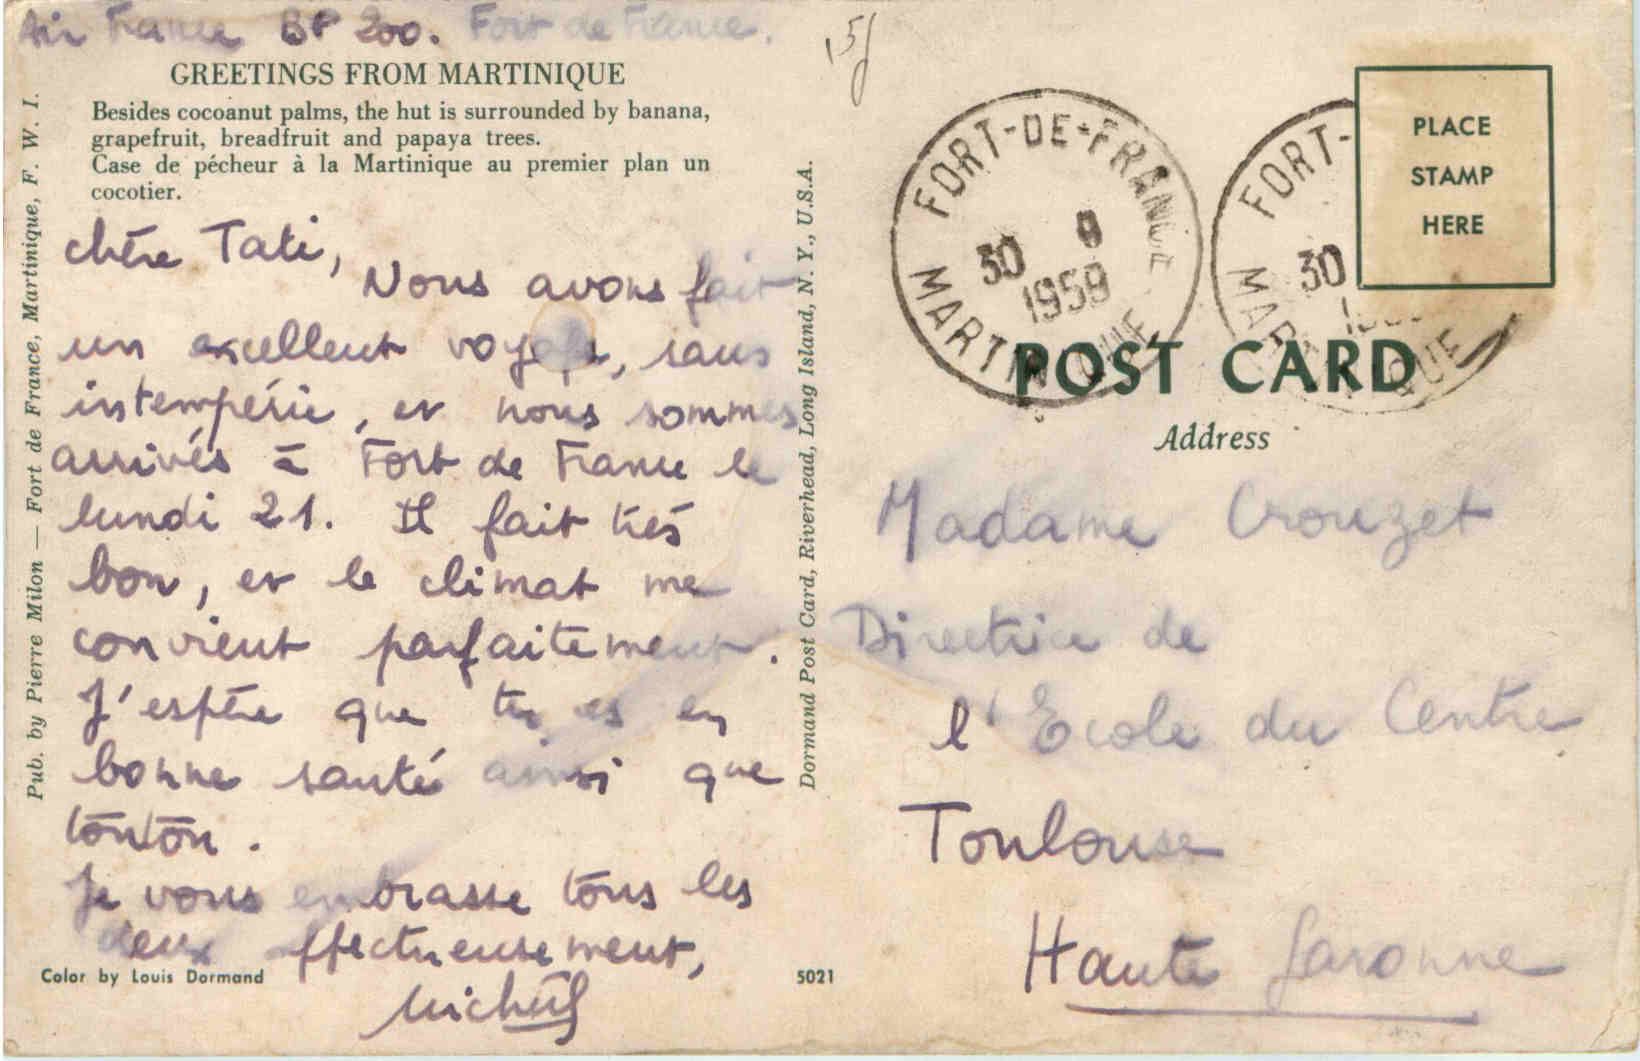 Air France BP 200. Fort de France.
GREETINGS FROM MARTINIQUE
Besides cocoanut palms, the hut is surrounded by banana,
grapefruit, breadfruit and papaya trees.
Case de pécheur à la Martinique au premier plan un
cocotier.
chère Tati,
Nous avons fait
un excellent voyage, sans
intempérie, et nous sommes
arrivés à Fort de France le
lundi 21. Il fait très
bon, et le climat me
convient parfaitement.
J'espère que tu es en
bonne santé ainsi que
tonton.
Je vous embrasse tous les
deux affectueusement,
Color by Louis Dormand
5021
Pub. by Pierre Milon — Fort de France, Martinique, F. W. I.
Dormand Post Card, Riverhead, Long Island, N. Y., U.S.A.
FORT-DE-FRANCE
30 9
1959
MARTINIQUE
FORT-
30
MARTINIQUE
PLACE
STAMP
HERE
POST CARD
Address
Madame Crouzet
Directrice de
l'Ecole du Centre
Toulouse
Haute Garonne